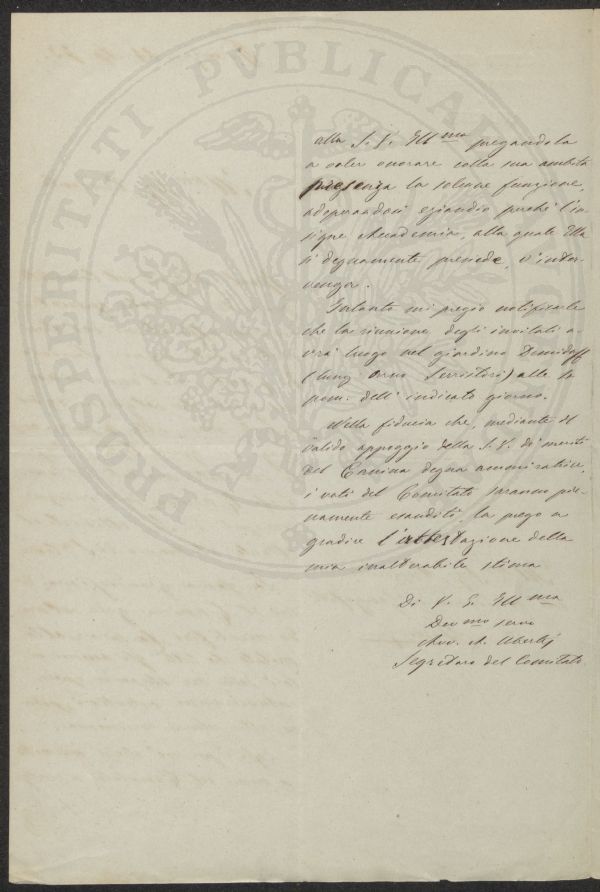 PROSPERITATI PVBLICAE
alla S. V. Ill.ma pregandola
a voler onorare colla sua ambita
presenza la solenne funzione,
adoprandosi eziandio perchè l'in-
signe Accademia, alla quale Ella
sì degnamente presiede, v'inter-
venga.
Intanto mi pregio notificarle
che la riunione degli invitati a-
vrà luogo nel giardino Demidoff
(Lung'Arno Serristori) alle
pom. dell'indicato giorno.
Nella fiducia che, mediante il
valido appoggio della S. V. di meriti
del degna ammiratrice,
i voti del Comitato saranno pie-
namente esauditi, la prego a
gradire l'attestazione della
mia inalterabile stima
Di V. S. Ill.ma
Dev.mo servo
Avv. A.
Segretario del Comitato